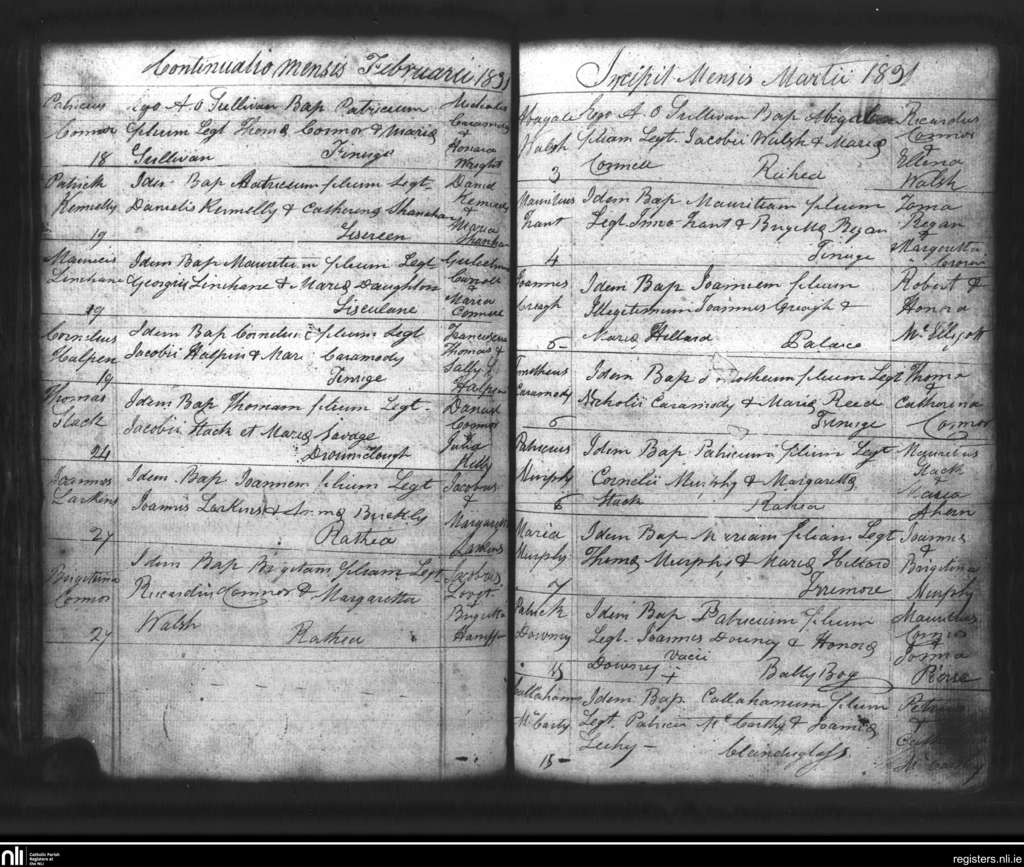 Continuatio Mensis Februarii 1831
Patricius
Connor
18
Ego A O Sullivan Bap Patricium
filium Legt Thomæ Connor & Mariæ
Sullivan Finuge
Michaelis
&
Honora
Wright
Patrick
Kennelly
19
Idem Bap Patricium filium Legt
Danielis Kennelly & Catherina Shanahan
Lisereen
Daniel
Kennelly
&
Maria
Mauricis
Linehane
19
Idem Bap Mauritium filium Legt
Georgii Linehane & Mariæ Daughton
Carroll
Maria
Connor
Cornelius
Halpen
19
Idem Bap Cornelium filium Legt
Jacobii Halpin & Mari Caramody
Finuge
Thomas &
Sally
Halpen
Thomas
Stack
24
Idem Bap Thomam filium Legt
Jacobii Stack et Mariæ Savage
Droumclough
Connor
Julia
Kelly
Joannes
Larkins
27
Idem Bap Joannem filium Legt
Joannis Larkins & Annæ Buckly
Rathea
Jacobus
&
Margaret
Larkins
Brigitina
Connor
27
Idem Bap Brigitam filiam Legt
Ricardii Connor & Margaretta
Walsh Rathea
Jacobus
Lovet
&
Brigitta
Incipit Mensis Martii 1831
Abagale
Walsh
3
Ego A. O Sullivan Bap
filiam Legt. Jacobii Walsh & Mariæ
Connell Rahea
Ricardus
Connor
&
Ellena
Walsh
Mauritius
Trant
4
Idem Bap Mauritium filium
Legt Trant & Brigitta Regan
Finuge
Toma
Regan
&
Margaretta
Joannes
Creagh
5
Idem Bap Joannem filium
Illegitimum Joannes Creagh &
Mariæ Hillard Palace
Robert &
Honora
McElligott
Timotheus
Caramody
6
Idem Bap Timotheum filium Legt
Nicholii Caramody & Mariæ Reed
Finuge
Thoma
&
Catherina
Connor
Patricius
Murphy
6
Idem Bap Patricium filium Legt
Cornelii Murphy & Margaretta
Stack Rahea
Mauritius
Stack
&
Maria
Ahern
Maria
Murphy
7
Idem Bap Mariam filiam Legt
Thomæ Murphy & Mariæ Hillard
Irremore
Joannes
&
Brigitina
Murphy
Patrick
Downey
15
Idem Bap Patricium filium
Legt. Joannes Downey & Honora
Downey Vacii Bally Bog
Mauritius
Connor
&
Callahanus
McCarthy
15
Idem Bap Callahanum filium
Legt Patricii McCarthy & Joanna
Leehy
&
nli
Catholic Parish
Registers at
the NLI
registers.nli.ie